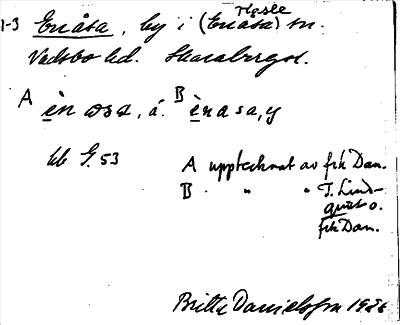 Hasle
1-3 Enåsa, by i (Enåsa) sn.
Vadsbo hd. Skarabergsl.
A èn øsa, á. B ènasa, y
kb G. 53
A upptecknat av frk Dan.
B " " " T. Lind-
quist o.
frk Dan.
Britta Danielson 1926